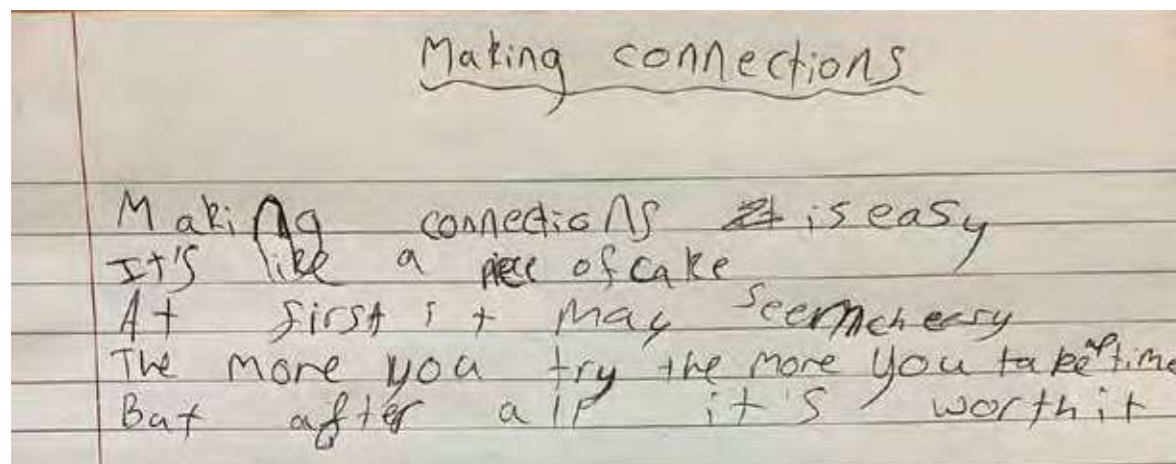 Making connections
Making connections is easy
It's like a piece of cake
At first it may seem cheesy
The more you try the more you take up time
But after all it's worth it